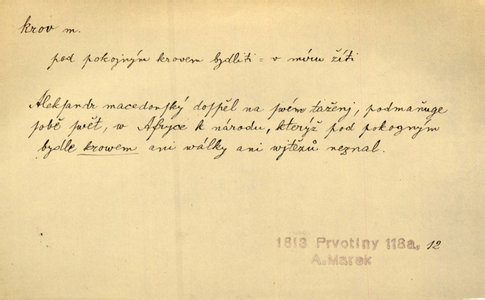 krov m.
pod pokojným krovem bydliti = v míru žíti
Alekſandr macedonſký doſpěl na ſwém taženj, podmaňuge
ſobě ſwět, w Afryce k národu, kterýž pod pokogným
bydle krowem ani wálky ani wjtězů neznal.
1813 Prvotiny 118a, 12
A. Marek